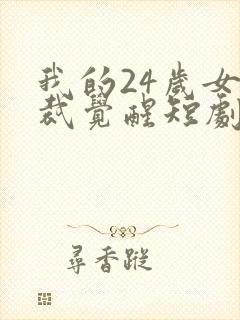 我的24歲女
裁覺醒短劇
尋香蹤